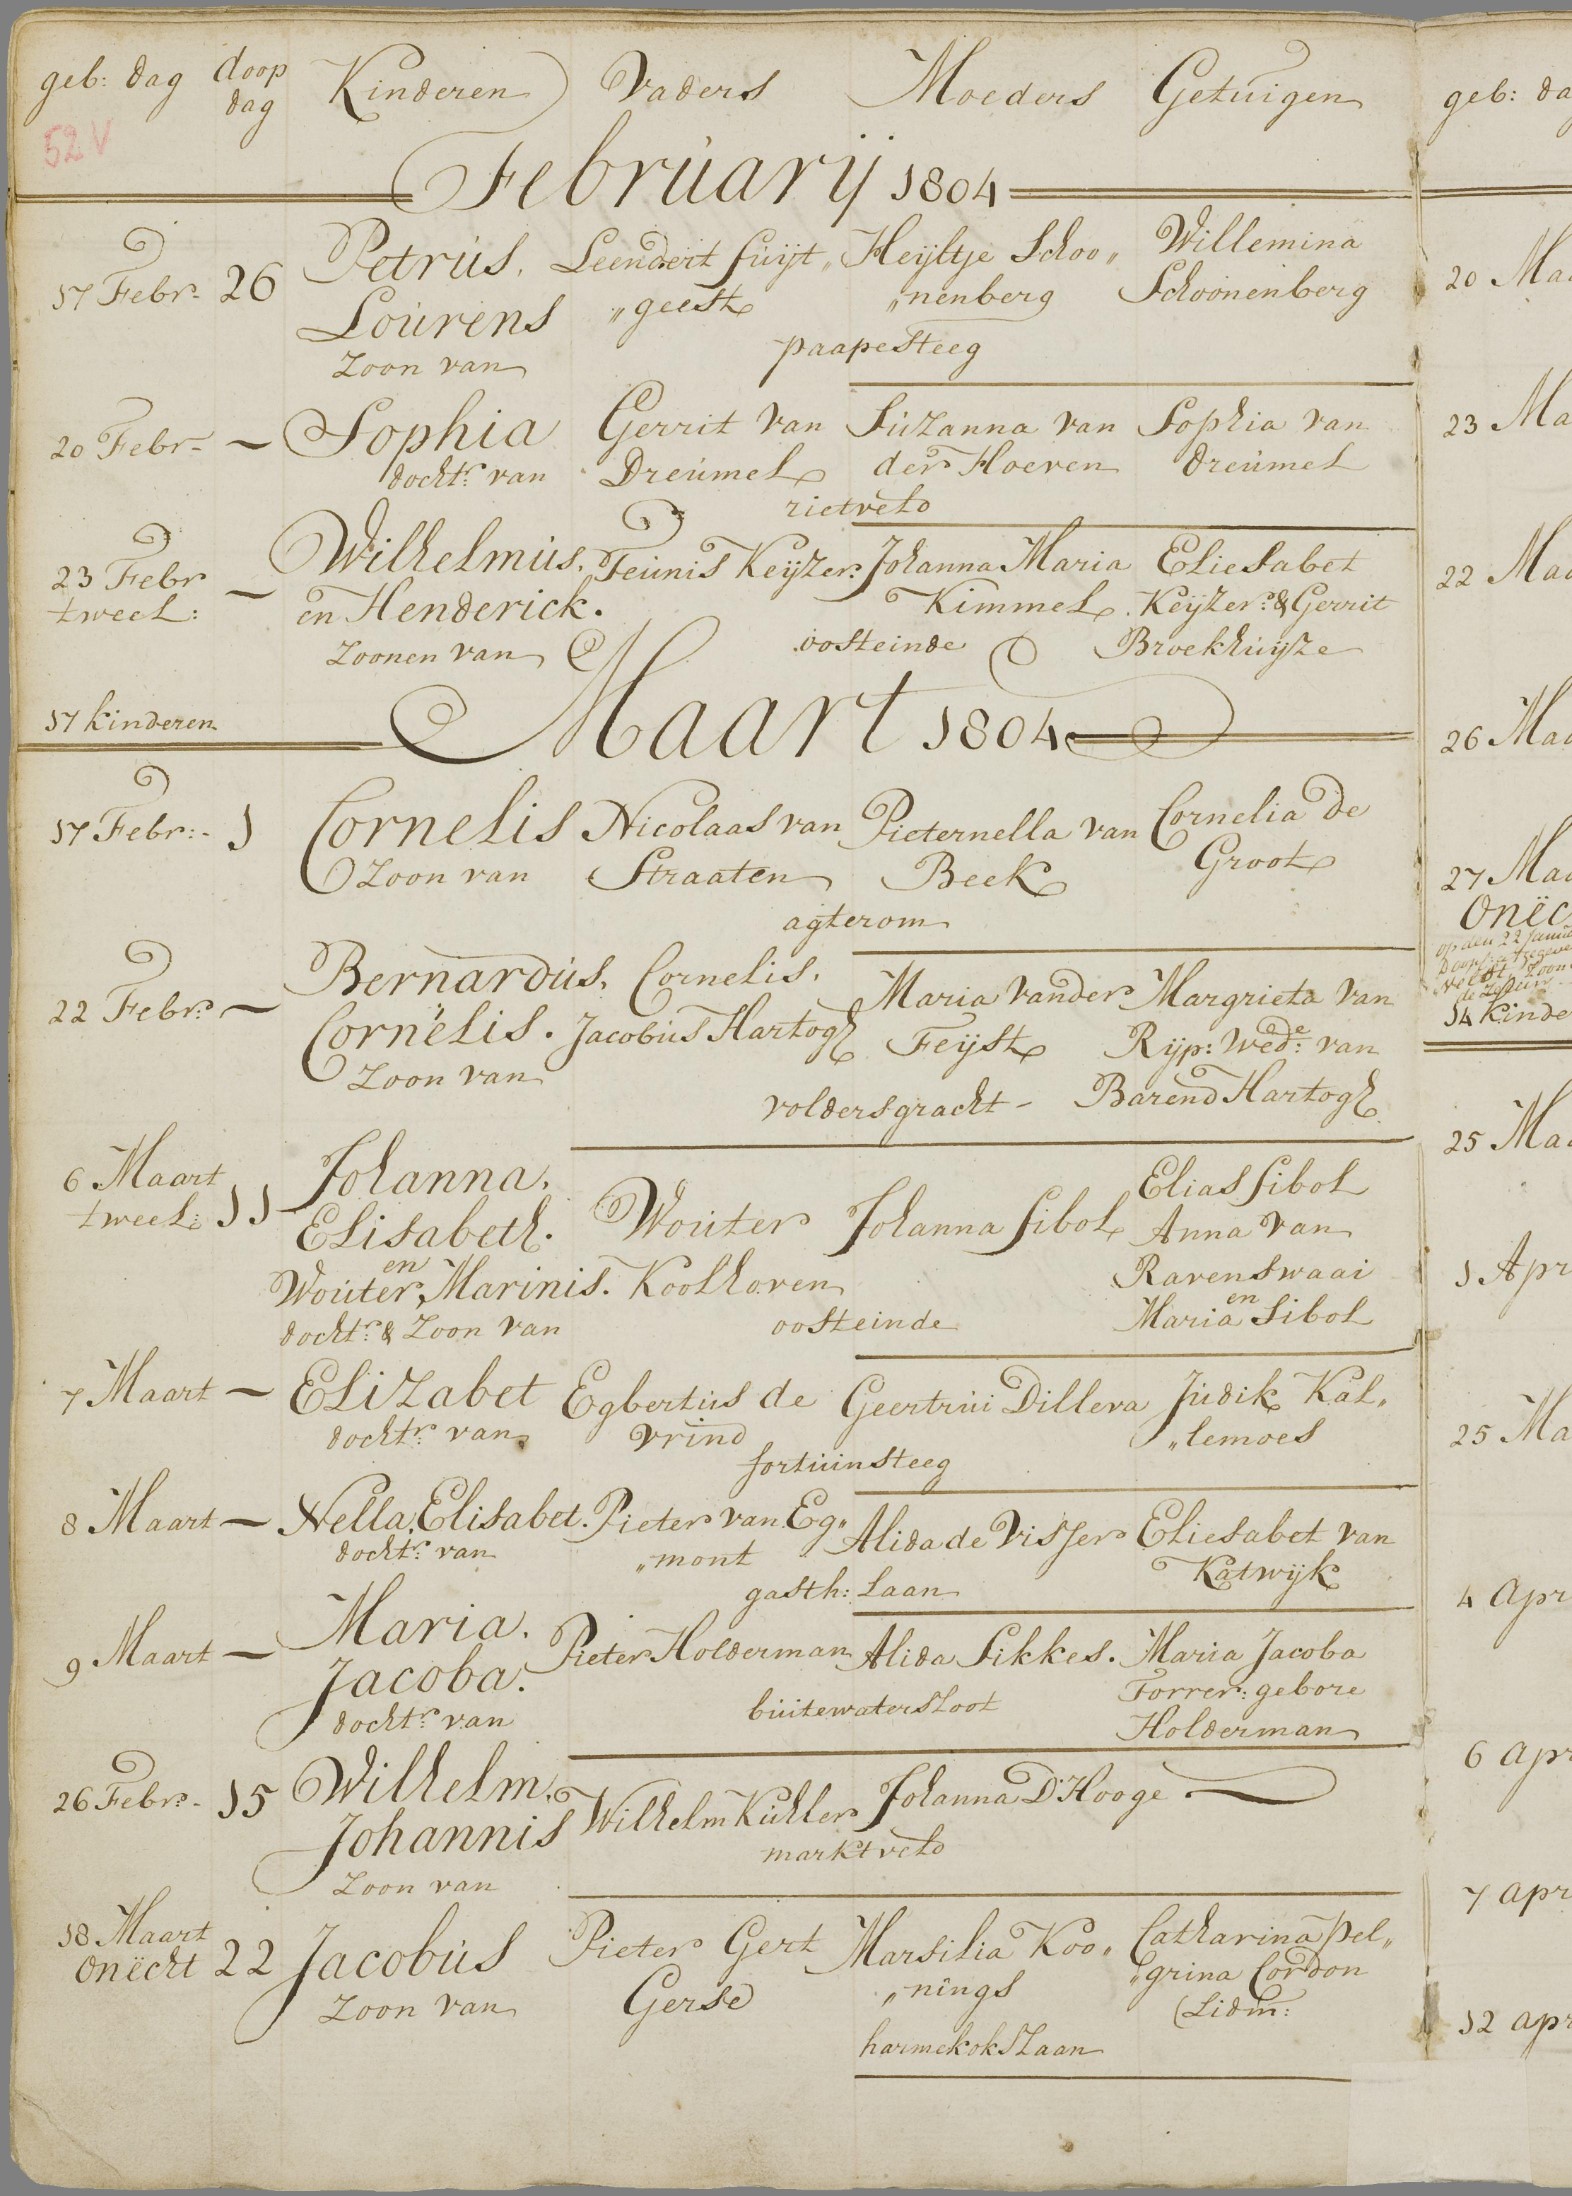 geb: dag doop dag Kinderen Vaders Moeders Getuigen
52 V
Februarij 1804
17 Febr. 26 Petrus, Leendert Suyt„ Heyltje Schoo„ Willemina
Lourens „geest „nenberg Schoonenberg
Zoon van paapesteeg
20 Febr. — Sophia Gerrit van Suzanna van Sophia van
docht.r van Dreumel der Hoeven dreumel
rietveld
23 Febr — Wilhelmus, Teunis Keyzer. Johanna Maria Eliesabet
tweel: en Henderick. Kimmel. Keyzer & Gerrit
Zoonen van oosteinde Broekhuyze
17 kinderen
Maart 1804
17 Febr: 1 Cornelis Nicolaas van Pieternella van Cornelia de
Zoon van Straaten Beek Groot
agterom
22 Febr. — Bernardus, Cornelis, Maria vander Margrieta van
Cornelis. Jacobus Hartogh Feyst Ryp: Wed:e van
Zoon van voldersgracht - Barend Hartogh
6 Maart 11 Johanna, Elias Sibol
tweel: Elisabeth. Wouter Johanna Sibol Anna van
en Ravenswaai
Wouter, Marinis. Koolhoven en
docht.r & Zoon van oosteinde Maria Sibol
7 Maart — Elizabet Egbertus de Geertrui Dilleva Judik Kal„
docht.r van vrind „lemoes
fortuinsteeg
8 Maart — Nella, Elisabet. Pieter van Eg„ Alida de Visser Eliesabet van
docht.r van „mont Katwijk
gasth: laan
9 Maart — Maria, Pieter Holderman Alida Sikkes. Maria Jacoba
Jacoba. buitewatersloot Forrer: gebore
docht.r van Holderman
26 Febr. 15 Wilhelm, Wilhelm Kuhler Johanna D'Hooge —
Johannis marktveld
Zoon van
18 Maart 22 Jacobus Pieter Gert Marsilia Koo„ Catharina Pel„
onëcht Zoon van Gerse „nings „grina Cordon
(Lidm:
harmekokslaan
geb: da
20 Maa
23 Ma
22 Maa
26 Maa
27 Maa
Onëc
op den 22 Janu
14 Kinde
25 Maa
1 Apr
25 Ma
4 apr
6 apr
7 apr
12 apr